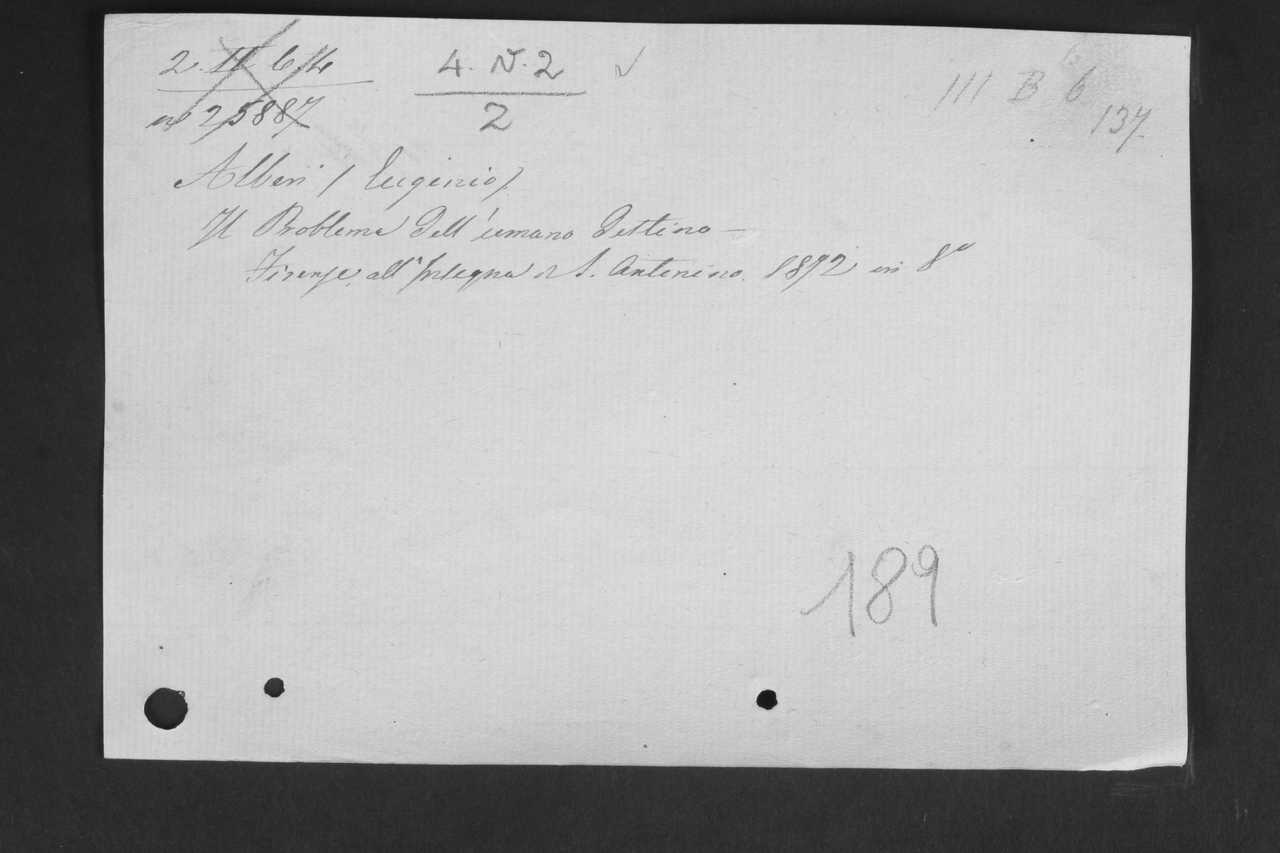 2. II 6/4
n° 25887
4. N. 2
2
III B 6
137.
Alberi (Eugenio)
Il Problema dell'umano destino —
Firenze, all'Insegna di S. Antonino. 1872 in 8°
189